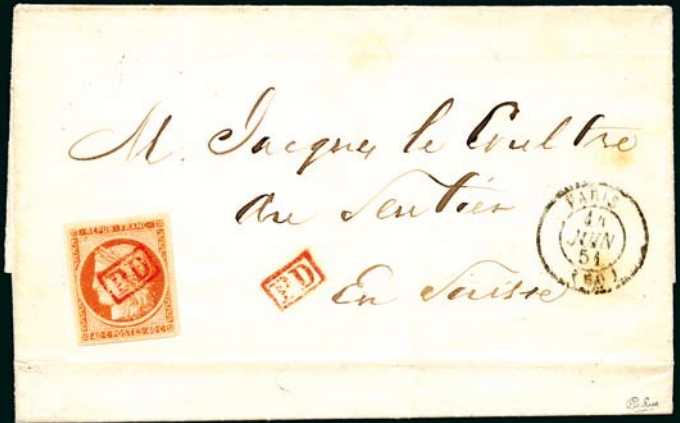 M. Jacques le Coultre
au Sentier
En Suisse
PARIS
JUIN
51
(60)
REPUB·FRANC·
PD
40·C·POSTES·40·C
PD